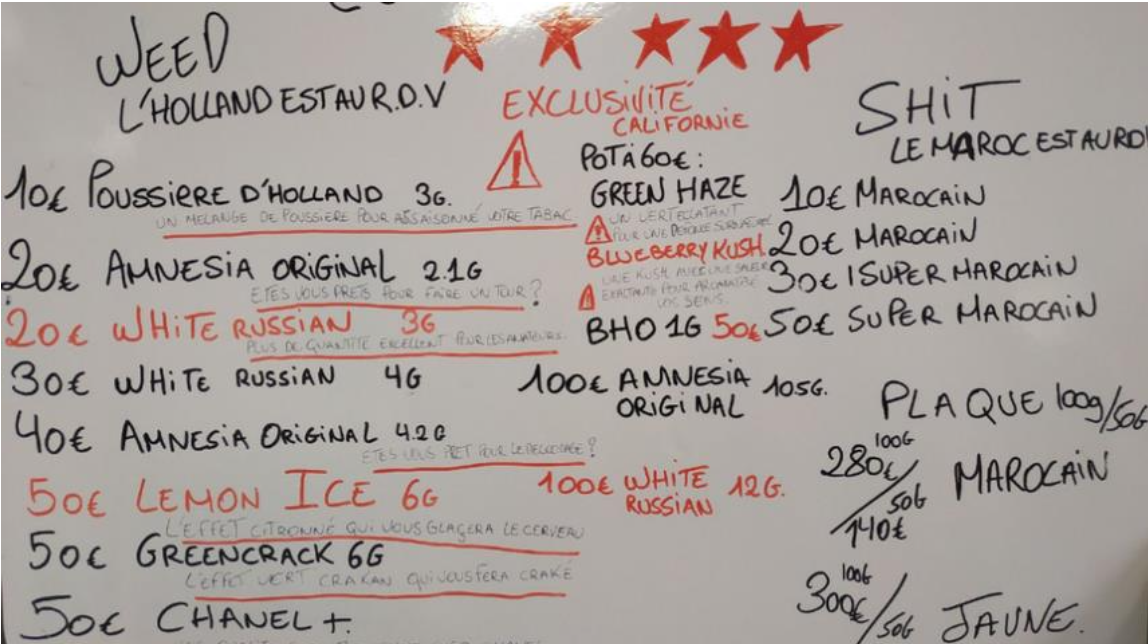 WEED
L'HOLLAND EST AU R.D.V
10€ POUSSIERE D'HOLLAND 3G.
UN MELANGE DE POUSSIERE POUR ASSAISONNÉ VOTRE TABAC
20€ AMNESIA ORIGINAL 2.1G
ETES VOUS PRETS POUR FAIRE UN TOUR ?
20€ WHITE RUSSIAN 3G
PLUS DE QUANTITE EXCELLENT POUR LES AMATEURS.
30€ WHITE RUSSIAN 4G
40€ AMNESIA ORIGINAL 4.2G
ETES VOUS PRET POUR LE DECOLLAGE ?
50€ LEMON ICE 6G
L'EFFET CITRONNÉ QUI VOUS GLAÇERA LE CERVEAU
50€ GREENCRACK 6G
L'EFFET VERT CRAKAN QUI VOUS FERA CRAKÉ
50€ CHANEL +.
EXCLUSIVITÉ
CALIFORNIE
POT À 60€ :
GREEN HAZE
UN VERT ECLATANT
POUR UNE
BLUEBERRY KUSH
UNE KUSH AVEC UNE
POUR
VOS SENS.
BHO 1G 50€
100€ AMNESIA 10.5G.
ORIGINAL
100€ WHITE 12G.
RUSSIAN
SHIT
LE MAROC EST AU RD
10€ MAROCAIN
20€ MAROCAIN
30€ 1 SUPER MAROCAIN
50€ SUPER MAROCAIN
PLAQUE 100g/50G
100G
280€/
50G
140€
MAROCAIN
100G
300€/50G JAUNE.